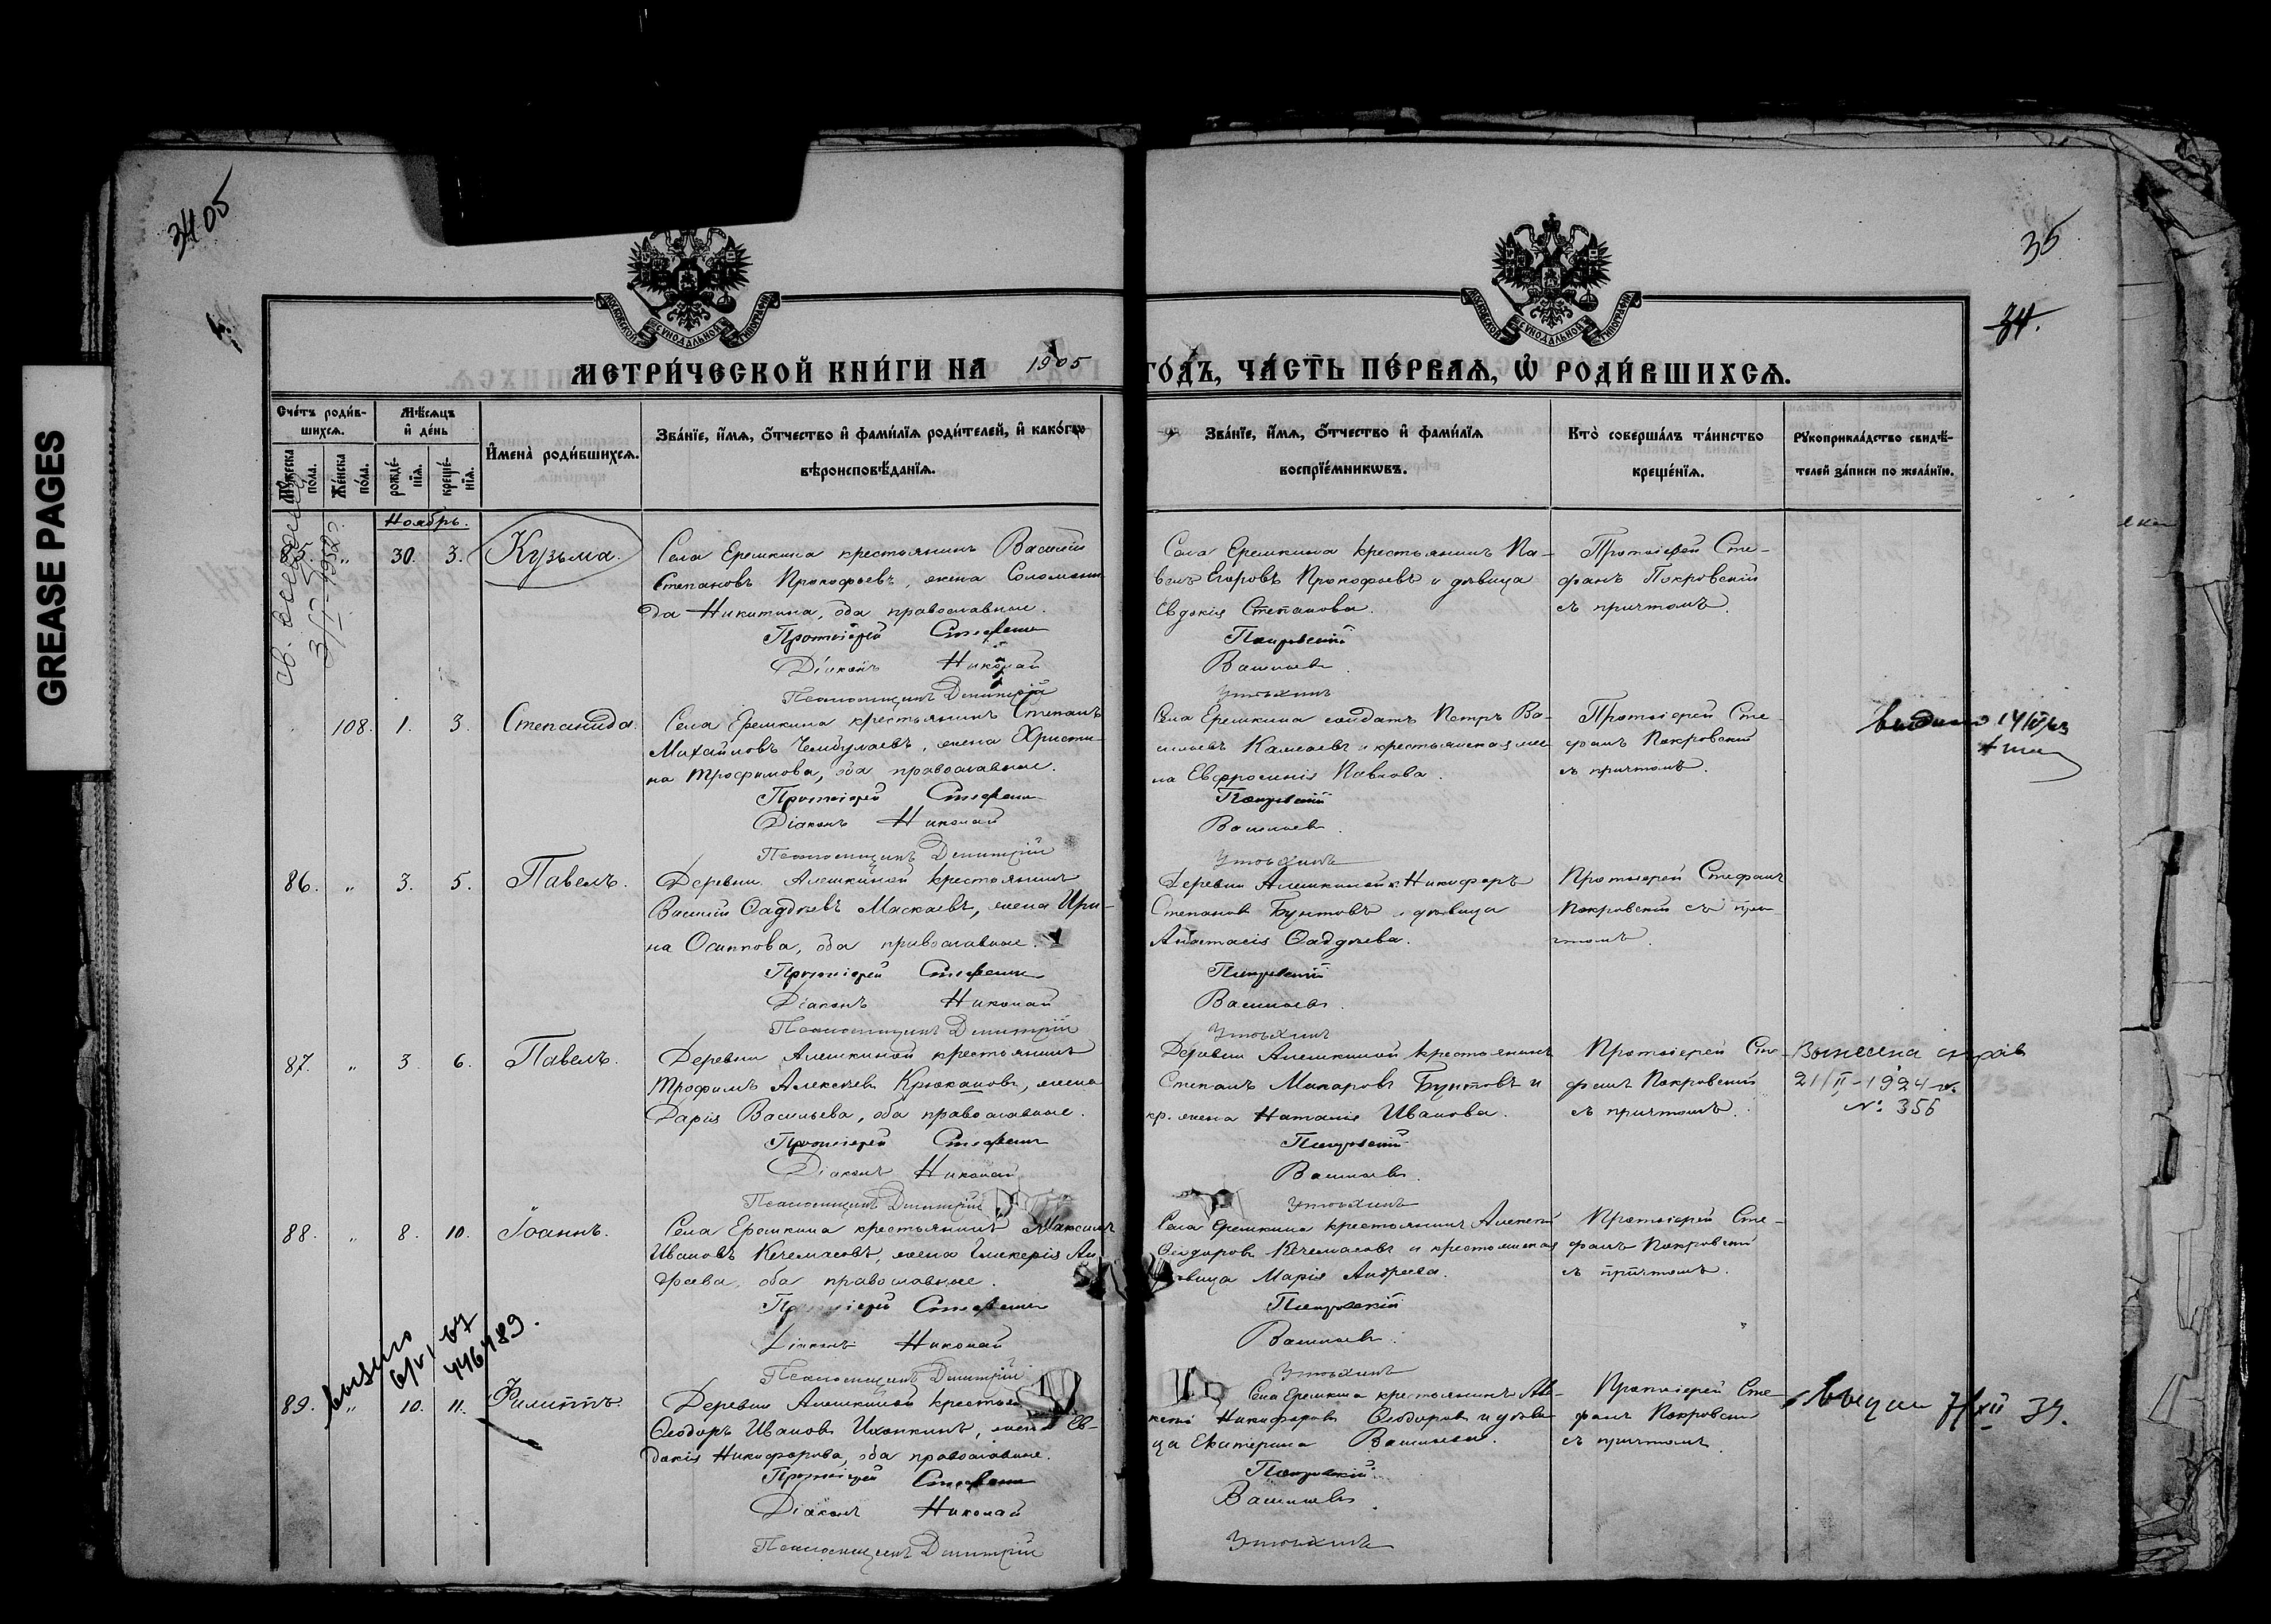 GREASE PAGES
3405
35
34.
МОСКОВСКОЙ СУНОДАЛЬНОЙ ТИПОГРАФІИ
МОСКОВСКОЙ СУНОДАЛЬНОЙ ТИПОГРАФІИ
МЕТРИ́ЧЕСКОЙ КНИ́ГИ НА 1905 ГО́ДЪ, ЧА́СТЬ ПЕ́РВАѦ, Ѡ҆ РОДИ́ВШИХСѦ.
Сче́тъ роди́в-
шихсѧ.
Мѣ́сѧцъ
и҆ де́нь
Мꙋ́жеска по́ла.
Же́нска по́ла.
рожде́-
нїѧ.
креще́-
нїѧ.
И҆мена̀ роди́вшихсѧ.
Зва́нїе, и҆́мѧ, ѻ҆́тчество и҆ фами́лїѧ роди́телей, и҆ како́гѡ
вѣроисповѣ́данїѧ.
Зва́нїе, и҆́мѧ, ѻ҆́тчество и҆ фами́лїѧ
воспрїе́мникѡвъ.
Кто̀ соверша́лъ та́инство
креще́нїѧ.
Рꙋкоприкла́дство свидѣ́-
телей за́писи по жела́нїю.
Ноябрь.
85. " 30. 3. Кузьма.
Села Еремкина крестьянинъ Василій
Степановъ Прокофьевъ, жена Соломони-
да Никитина, оба православные.
Протоіерей Стефанъ
Діаконъ Николай
Псаломщикъ Димитрій
Села Еремкина крестьянинъ Па-
велъ Егоровъ Прокофьевъ и дѣвица
Евдокія Степанова.
Покровскій
Васильевъ.
Протоіерей Сте-
фанъ Покровскій
съ причтомъ.
108. 1. 3. Степанида.
Села Еремкина крестьянинъ Степанъ
Михайловъ Чембулаевъ, жена Христи-
на Трофимова, оба православные.
Протоіерей Стефанъ
Діаконъ Николай
Псаломщикъ Димитрій
Села Еремкина солдатъ Петръ Ва-
сильевъ Камсаевъ и крестьянская же-
на Евфросинія Павлова.
Покровскій
Васильевъ.
Протоіерей Сте-
фанъ Покровскій
съ причтомъ.
86. " 3. 5. Павелъ.
Деревни Алешкиной крестьянинъ
Василій Ѳаддѣевъ Маскаевъ, жена Ири-
на Осиппова, оба православные.
Протоіерей Стефанъ
Діаконъ Николай
Псаломщикъ Димитрій
Деревни Алешкиной к. Никифоръ
Степановъ Бунтовъ и дѣвица
Анастасія Ѳаддѣева.
Покровскій
Васильевъ.
Протоіерей Стефанъ
Покровскій съ при-
чтомъ.
87. " 3 6. Павелъ.
Деревни Алешкиной крестьянинъ
Трофимъ Алексѣевъ Крюкановъ, жена
Дарія Васильева, оба православные.
Протоіерей Стефанъ
Діаконъ Николай
Псаломщикъ Димитрій
Деревни Алешкиной крестьянинъ
Степанъ Макаровъ Бунтовъ и
кр. жена Наталія Иванова.
Покровскій
Васильевъ.
Протоіерей Сте-
фанъ Покровскій
съ причтомъ.
21/II-1924 г.
№ 356
88. " 8. 10. Іоаннъ.
Села Еремкина крестьянинъ Максимъ
Ивановъ Кечемасовъ, жена Гликерія Ан-
дреева, оба православные.
Протоіерей Стефанъ
Діаконъ Николай
Псаломщикъ Димитрій
Села Еремкина крестьянинъ Алексѣй
Ѳеодоровъ Кечемасовъ и крестьянская
дѣвица Марія Андреева.
Покровскій
Васильевъ.
Протоіерей Сте-
фанъ Покровскій
съ причтомъ.
89. " 10. 11. Филиппъ.
Деревни Алешкиной крестьян
Ѳеодоръ Ивановъ Ихонкинъ, жена Ев-
докія Никифорова, оба православные.
Протоіерей Стефанъ
Діаконъ Николай
Псаломщикъ Димитрій
Села Еремкина крестьянинъ Але-
ксѣй Никифоровъ Ѳеодоровъ и дѣви-
ца Екатерина Васильева.
Покровскій
Васильевъ.
Протоіерей Сте-
фанъ Покровскій
съ причтомъ.